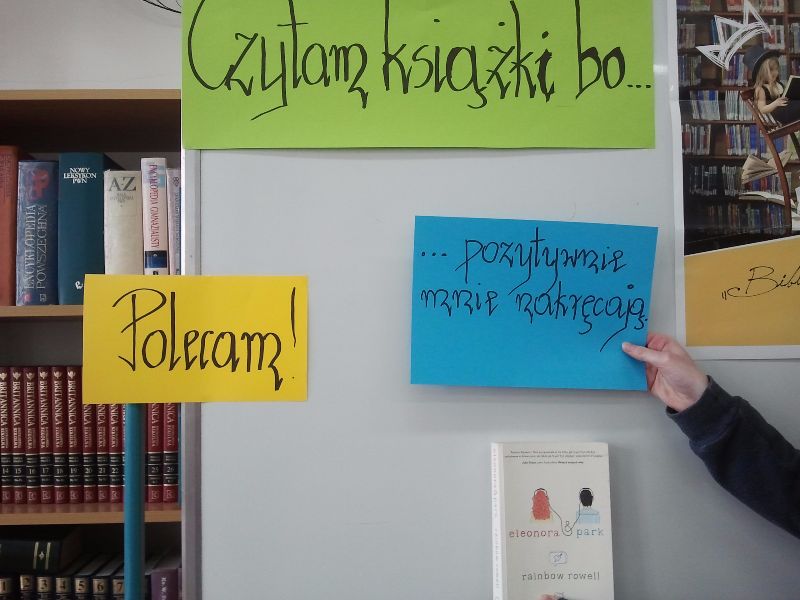 Czytam książki bo...
... pozytywnie
mnie zakręcają.
Polecam!
NOWY
LEKSYKON
PWN
A-Z
ENCYKLOPEDIA
POWSZECHNA
ENCYKLOPEDIA GIMNAZJALISTY
BRITANNICA
14 15 16 17 18 19 20 21 22 25 26
eleonora & park
rainbow rowell
„Bibl